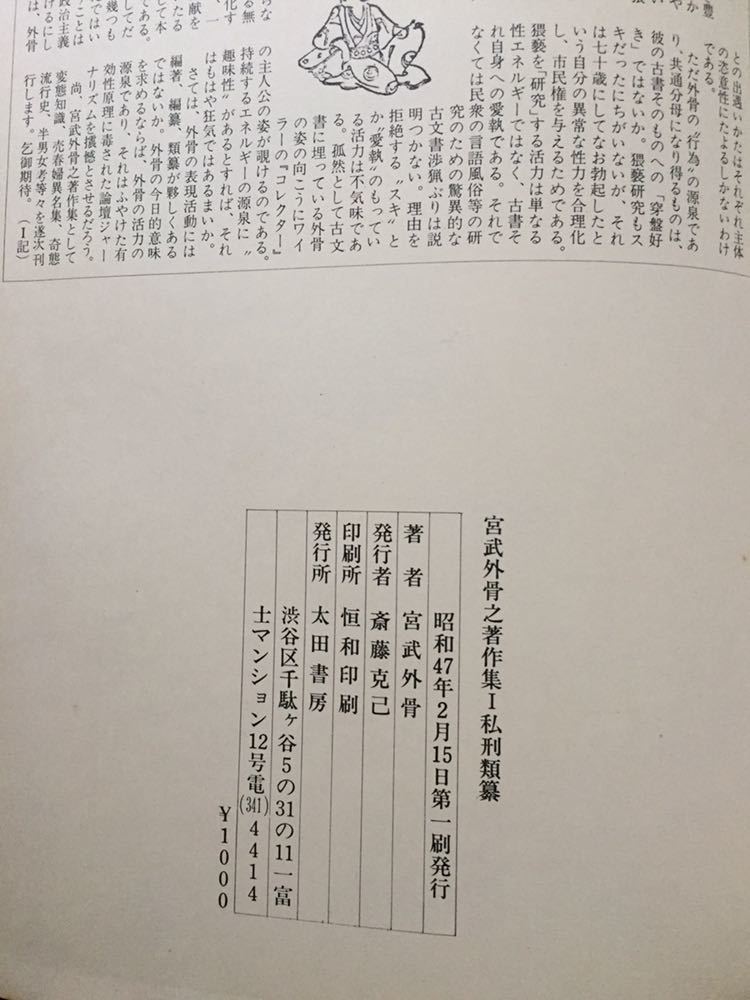 との出遇いかたはそれぞれ主体
の恣意性にたよるしかないわけ
である。
ただ外骨の〝行為〟の源泉であ
り、共通分母になり得るものは、
彼の古書そのものへの「穿盤好
き」ではないか。猥褻研究もス
キだったにちがいないが、それ
は七十歳にしてなお勃起したと
いう自分の異常な性力を合理化
し、市民権を与えるためである。
猥褻を「研究」する活力は単なる
性エネルギーではなく、古書そ
れ自身への愛執である。それで
なくては民衆の言語風俗等の研
究のための驚異的な
古文書渉猟ぶりは説
明つかない。理由を
拒絶する〝スキ〟と
か〝愛執〟のもってい
る活力は不気味であ
る。孤然として古文
書に埋っている外骨
の姿の向こうにワイ
ラーの『コレクター』
の主人公の姿が覗けるのである。
持続するエネルギーの源泉に〝
趣味性〟があるとすれば、それ
はもはや狂気ではあるまいか。
さては、外骨の表現活動には
編著、編纂、類纂が夥しくある
ではないか。外骨の今日的意味
を求めるならば、外骨の活力の
源泉であり、それはふやけた有
効性原理に毒された論壇ジャー
ナリズムを撼憾とさせるだろう。
尚、宮武外骨之著作集として
変態知識、売春婦異名集、奇態
流行史、半男女考等々を逐次刊
行します。乞御期待。（Ｉ記）
宮武外骨之著作集Ⅰ私刑類纂
昭和47年2月15日第一刷発行
著者 宮武外骨
発行者 斎藤克己
印刷所 恒和印刷
発行所 太田書房
渋谷区千駄ヶ谷5の31の11一富
士マンション12号電(341)4414
¥1000